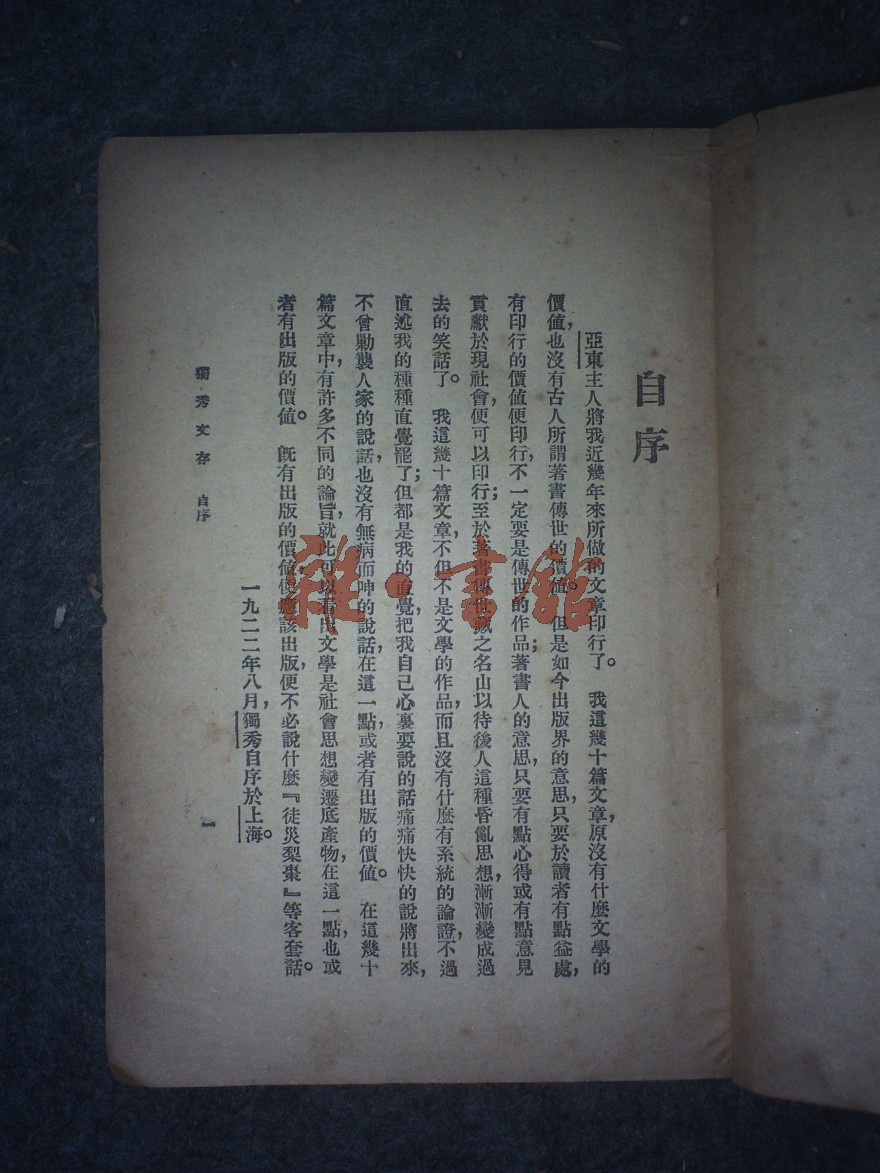 自序
亞東主人將我近幾年來所做的文章印行了。　我這幾十篇文章，原沒有什麼文學的
價值，也沒有古人所謂著書傳世的價值。　但是如今出版界的意思，只要於讀者有點益處，
有印行的價值便印行，不一定要是傳世的作品；著書人的意思，只要有點心得或有點意見
貢獻於現社會，便可以印行；至於著書傳世藏之名山以待後人這種昏亂思想，漸漸變成過
去的笑話了。　我這幾十篇文章，不但不是文學的作品，而且沒有什麼有系統的論證，不過
直述我的種種直覺罷了；但都是我的直覺，把我自己心裏要說的話痛痛快快的說將出來，
不曾勦襲人家的說話，也沒有無病而呻的說話，在這一點，或者有出版的價值。　在這幾十
篇文章中，有許多不同的論旨，就此可以看出文學是社會思想變遷底產物，在這一點，也或
者有出版的價值。　旣有出版的價值，便應該出版，便不必說什麼『徒災梨棗』等客套話。
一九二二年八月，獨秀自序於上海。
獨秀文存　自序
一
雜·書館